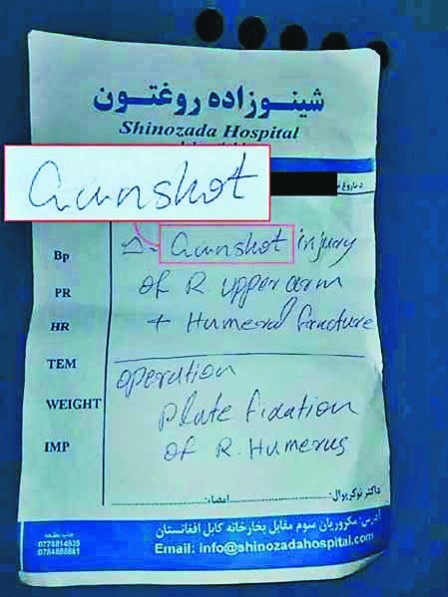 شینوزاده روغتون
Shinozada Hospital
Gunshot
Bp
PR
HR
TEM
WEIGHT
IMP
Gunshot injury
of R upper arm
+ Humeral fracture
operation
plate fixation
of R. Humerus
داکتر نوکریوال: امضاء:
آدرس: مکروریان سوم مقابل بخارخانه کابل افغانستان
Email: info@shinozadahospital.com